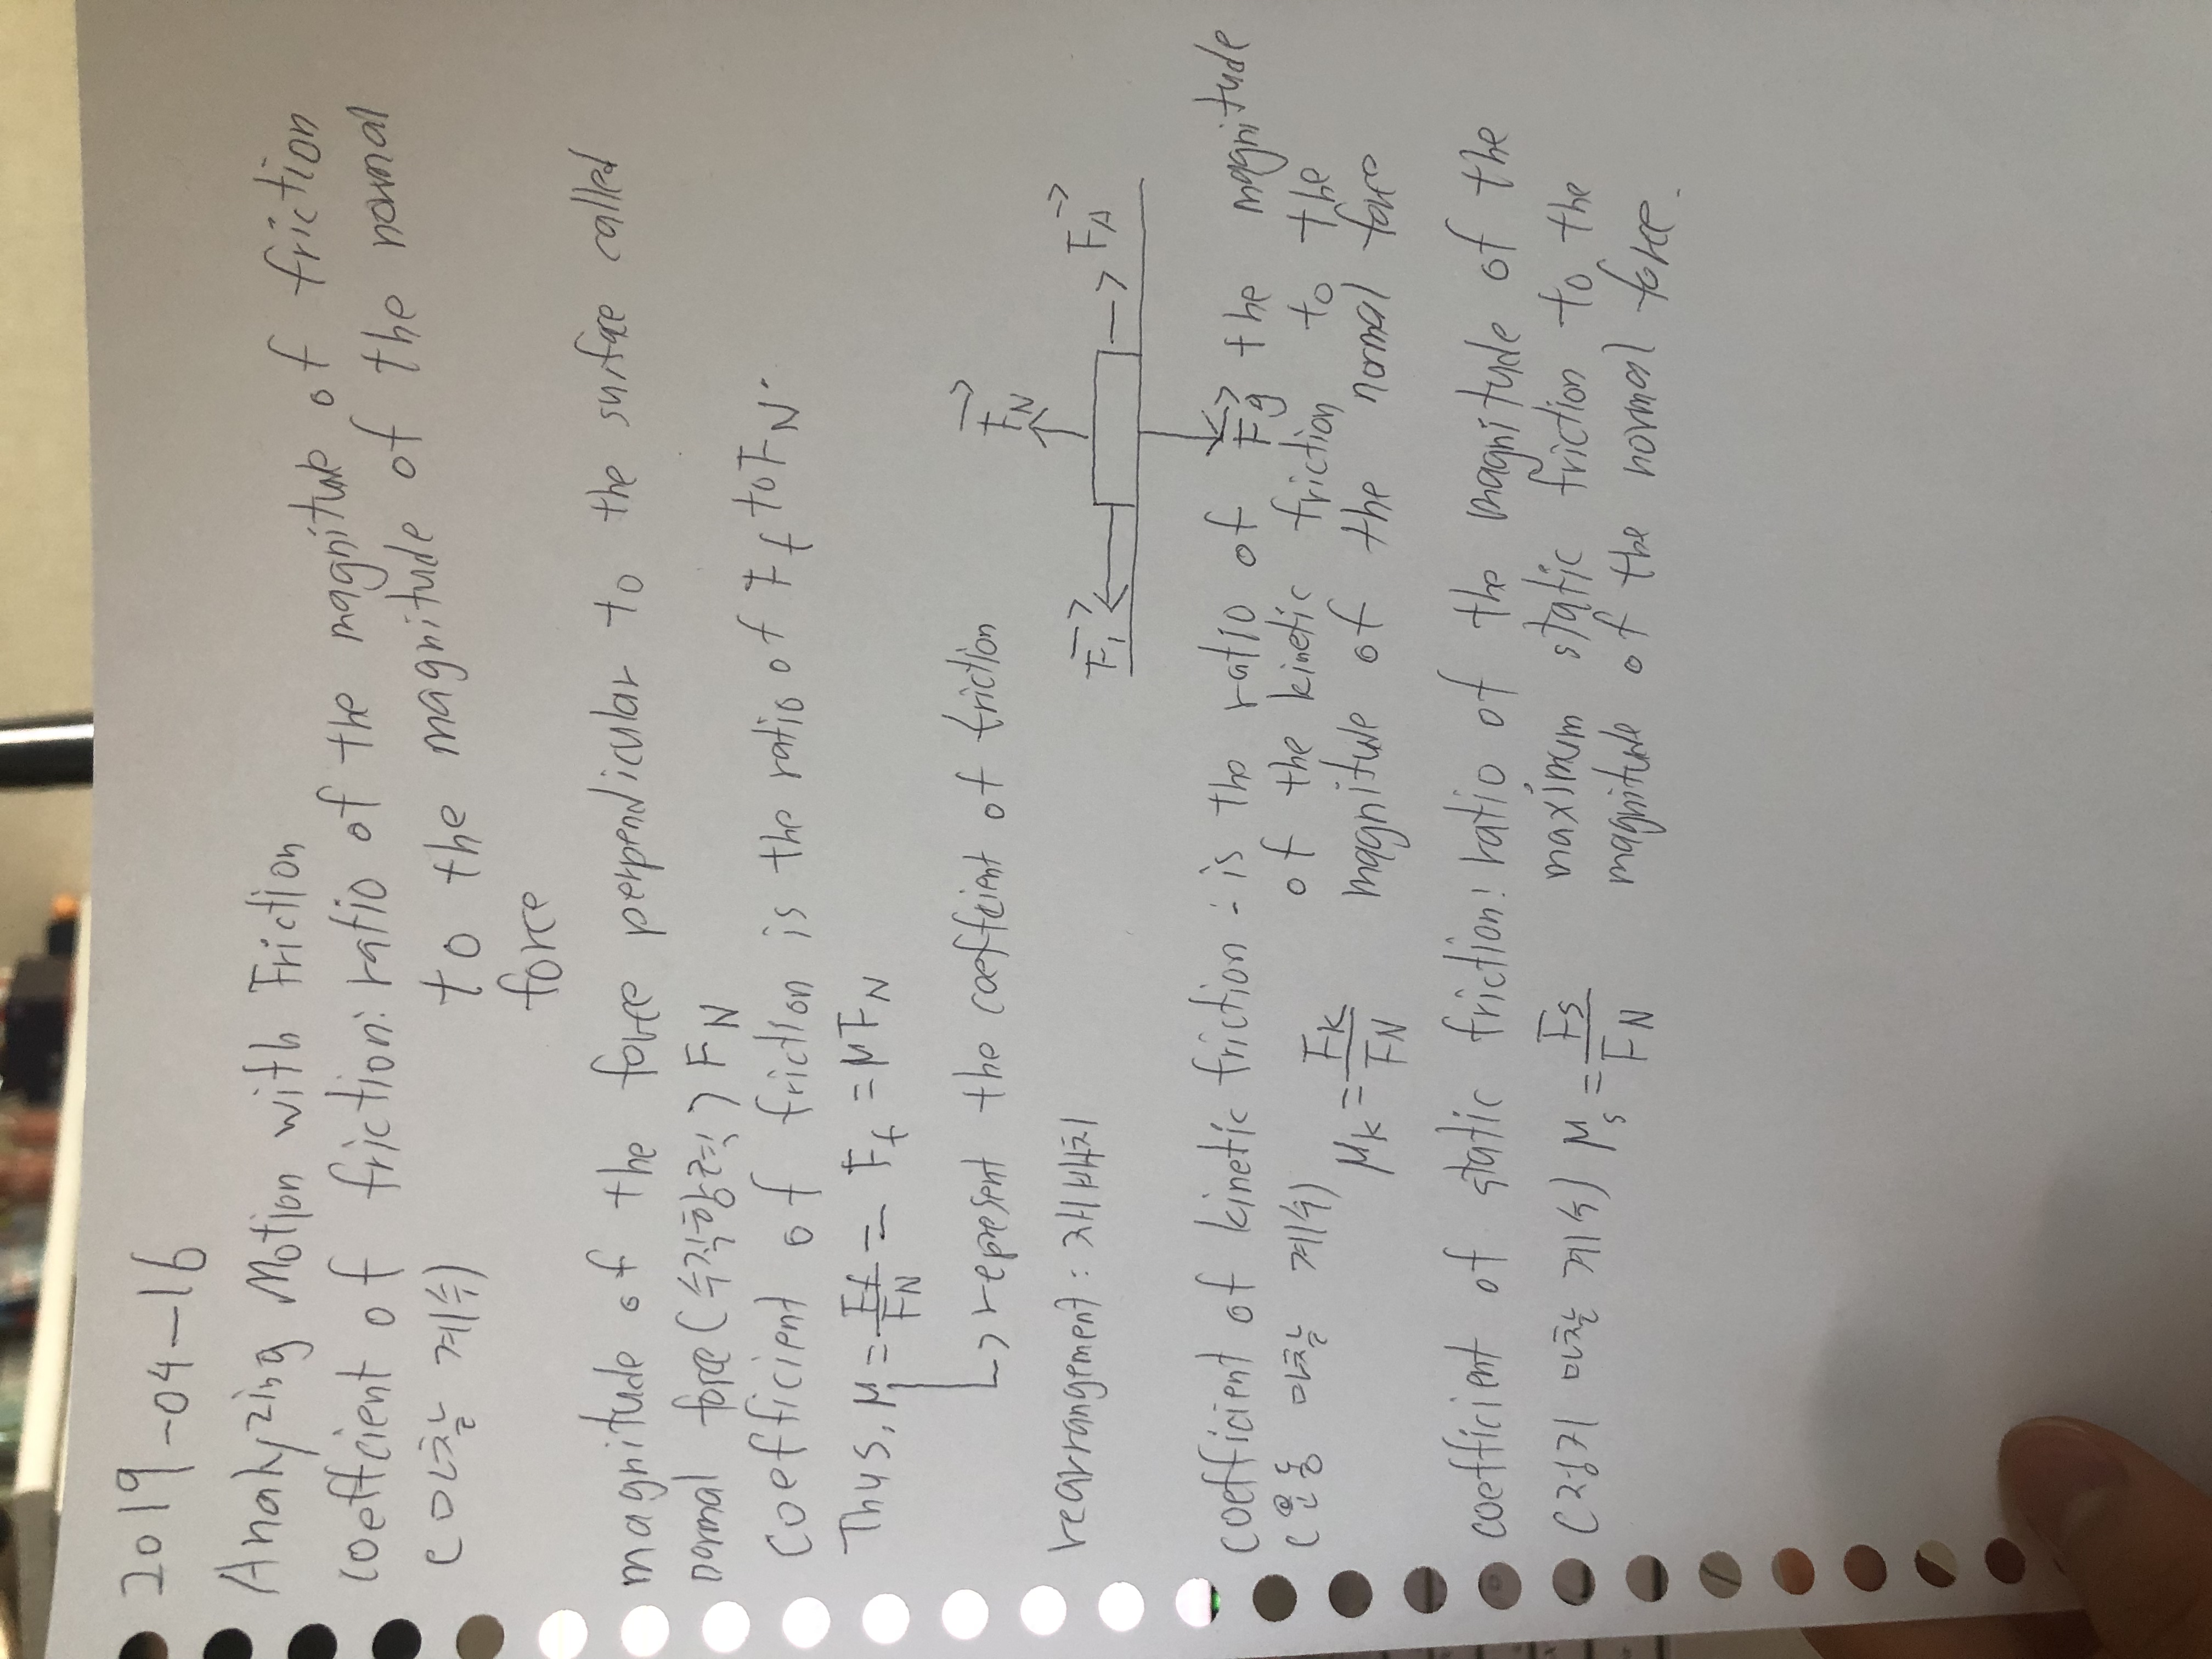 2019-04-16
Analyzing Motion with Friction
coefficient of friction: ratio of the magnitude of friction
(마찰 계수) to the magnitude of the normal
force
magnitude of the force perpendicular to the surface called
normal force (수직항력) FN
Coefficient of friction is the ratio of Ff to FN.
Thus, μ = Ff/FN = Ff = μFN
↳ represent the coefficient of friction
rearrangement: 재배치
FN
FA
Fg
coefficient of kinetic friction: is the ratio of the magnitude
(운동 마찰 계수) of the kinetic friction to the
μk = Fk/FN magnitude of the normal force
coefficient of static friction: ratio of the magnitude of the
(정지 마찰 계수) μs = Fs/FN maximum static friction to the
magnitude of the normal force.